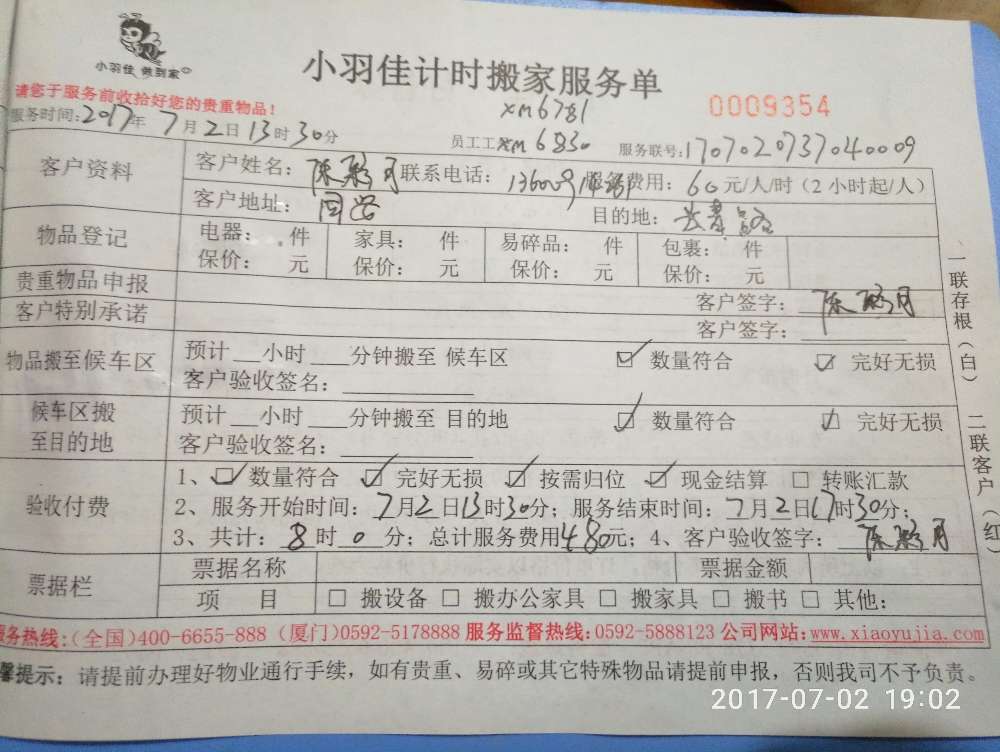 小羽佳 做到家
小羽佳计时搬家服务单
0009354
请您于服务前收拾好您的贵重物品！
xm6781
服务时间：2017年7月2日13时30分 员工工 xm6830 服务联号：1707020737040009
客户资料 客户姓名：陈 月 联系电话：136009 服务费用：60元/人/时（2小时起/人）
客户地址： 目的地：长青路
物品登记 电器： 件 家具： 件 易碎品： 件 包裹： 件
保价： 元 保价： 元 保价： 元 保价： 元
贵重物品申报 客户签字：陈 月
客户特别承诺 客户签字：
物品搬至候车区 预计 小时 分钟搬至 候车区 ☑ 数量符合 ☑ 完好无损
客户验收签名：
候车区搬至目的地 预计 小时 分钟搬至 目的地 ☑ 数量符合 ☑ 完好无损
客户验收签名：
验收付费 1、☑ 数量符合 ☑ 完好无损 ☑ 按需归位 ☑ 现金结算 □ 转账汇款
2、服务开始时间：7月2日13时30分；服务结束时间：7月2日17时30分；
3、共计：8时0分；总计服务费用480元；4、客户验收签字：陈 月
票据栏 票据名称 票据金额
项 目 □ 搬设备 □ 搬办公家具 □ 搬家具 □ 搬书 □ 其他：
一联存根（白） 二联客户（红）
服务热线：（全国）400-6655-888（厦门）0592-5178888 服务监督热线：0592-5888123 公司网站：www.xiaoyujia.com
馨提示：请提前办理好物业通行手续，如有贵重、易碎或其它特殊物品请提前申报，否则我司不予负责。
2017-07-02 19:02